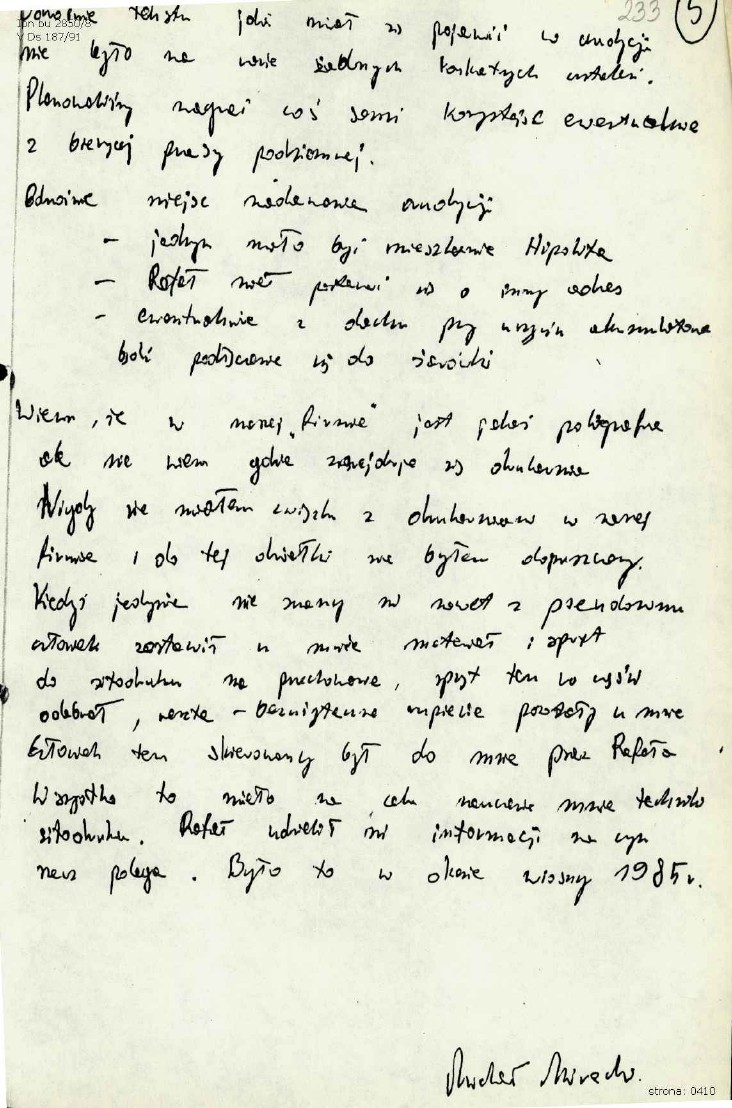 233 5
Ipn bu 2850/8
V Ds 187/91
tekstu jaki miał się pojawić w audycji
nie było na razie żadnych konkretnych ustaleń.
Planowaliśmy nagrać coś sami korzystając ewentualnie
z bieżącej prasy podziemnej.
Odnośnie miejsc nadawania audycji
– jednym miało być mieszkanie Hipolita
– Rafał miał postarać się o inny adres
– ewentualnie z dachu przy użyciu akumulatora
bądź podłączenie się do żarówki
Wiem, że w naszej „firmie" jest jakaś poligrafia
ale nie wiem gdzie znajduje się drukarnia
Nigdy nie miałem związku z drukarniami w naszej
firmie i do tej działki nie byłem dopuszczany.
Kiedyś jedynie nie znany mi nawet z pseudonimu
człowiek zostawił u mnie materiał i sprzęt
do sitodruku na przechowanie, sprzęt ten
odebrał, reszta – pozostały u mnie
Człowiek ten skierowany był do mnie przez Rafała
Wszystko to miało na celu nauczenie mnie techniki
sitodruku. Rafał udzielił mi informacji na czym
rzecz polega. Było to w okresie wiosny 1985 r.
strona: 0410